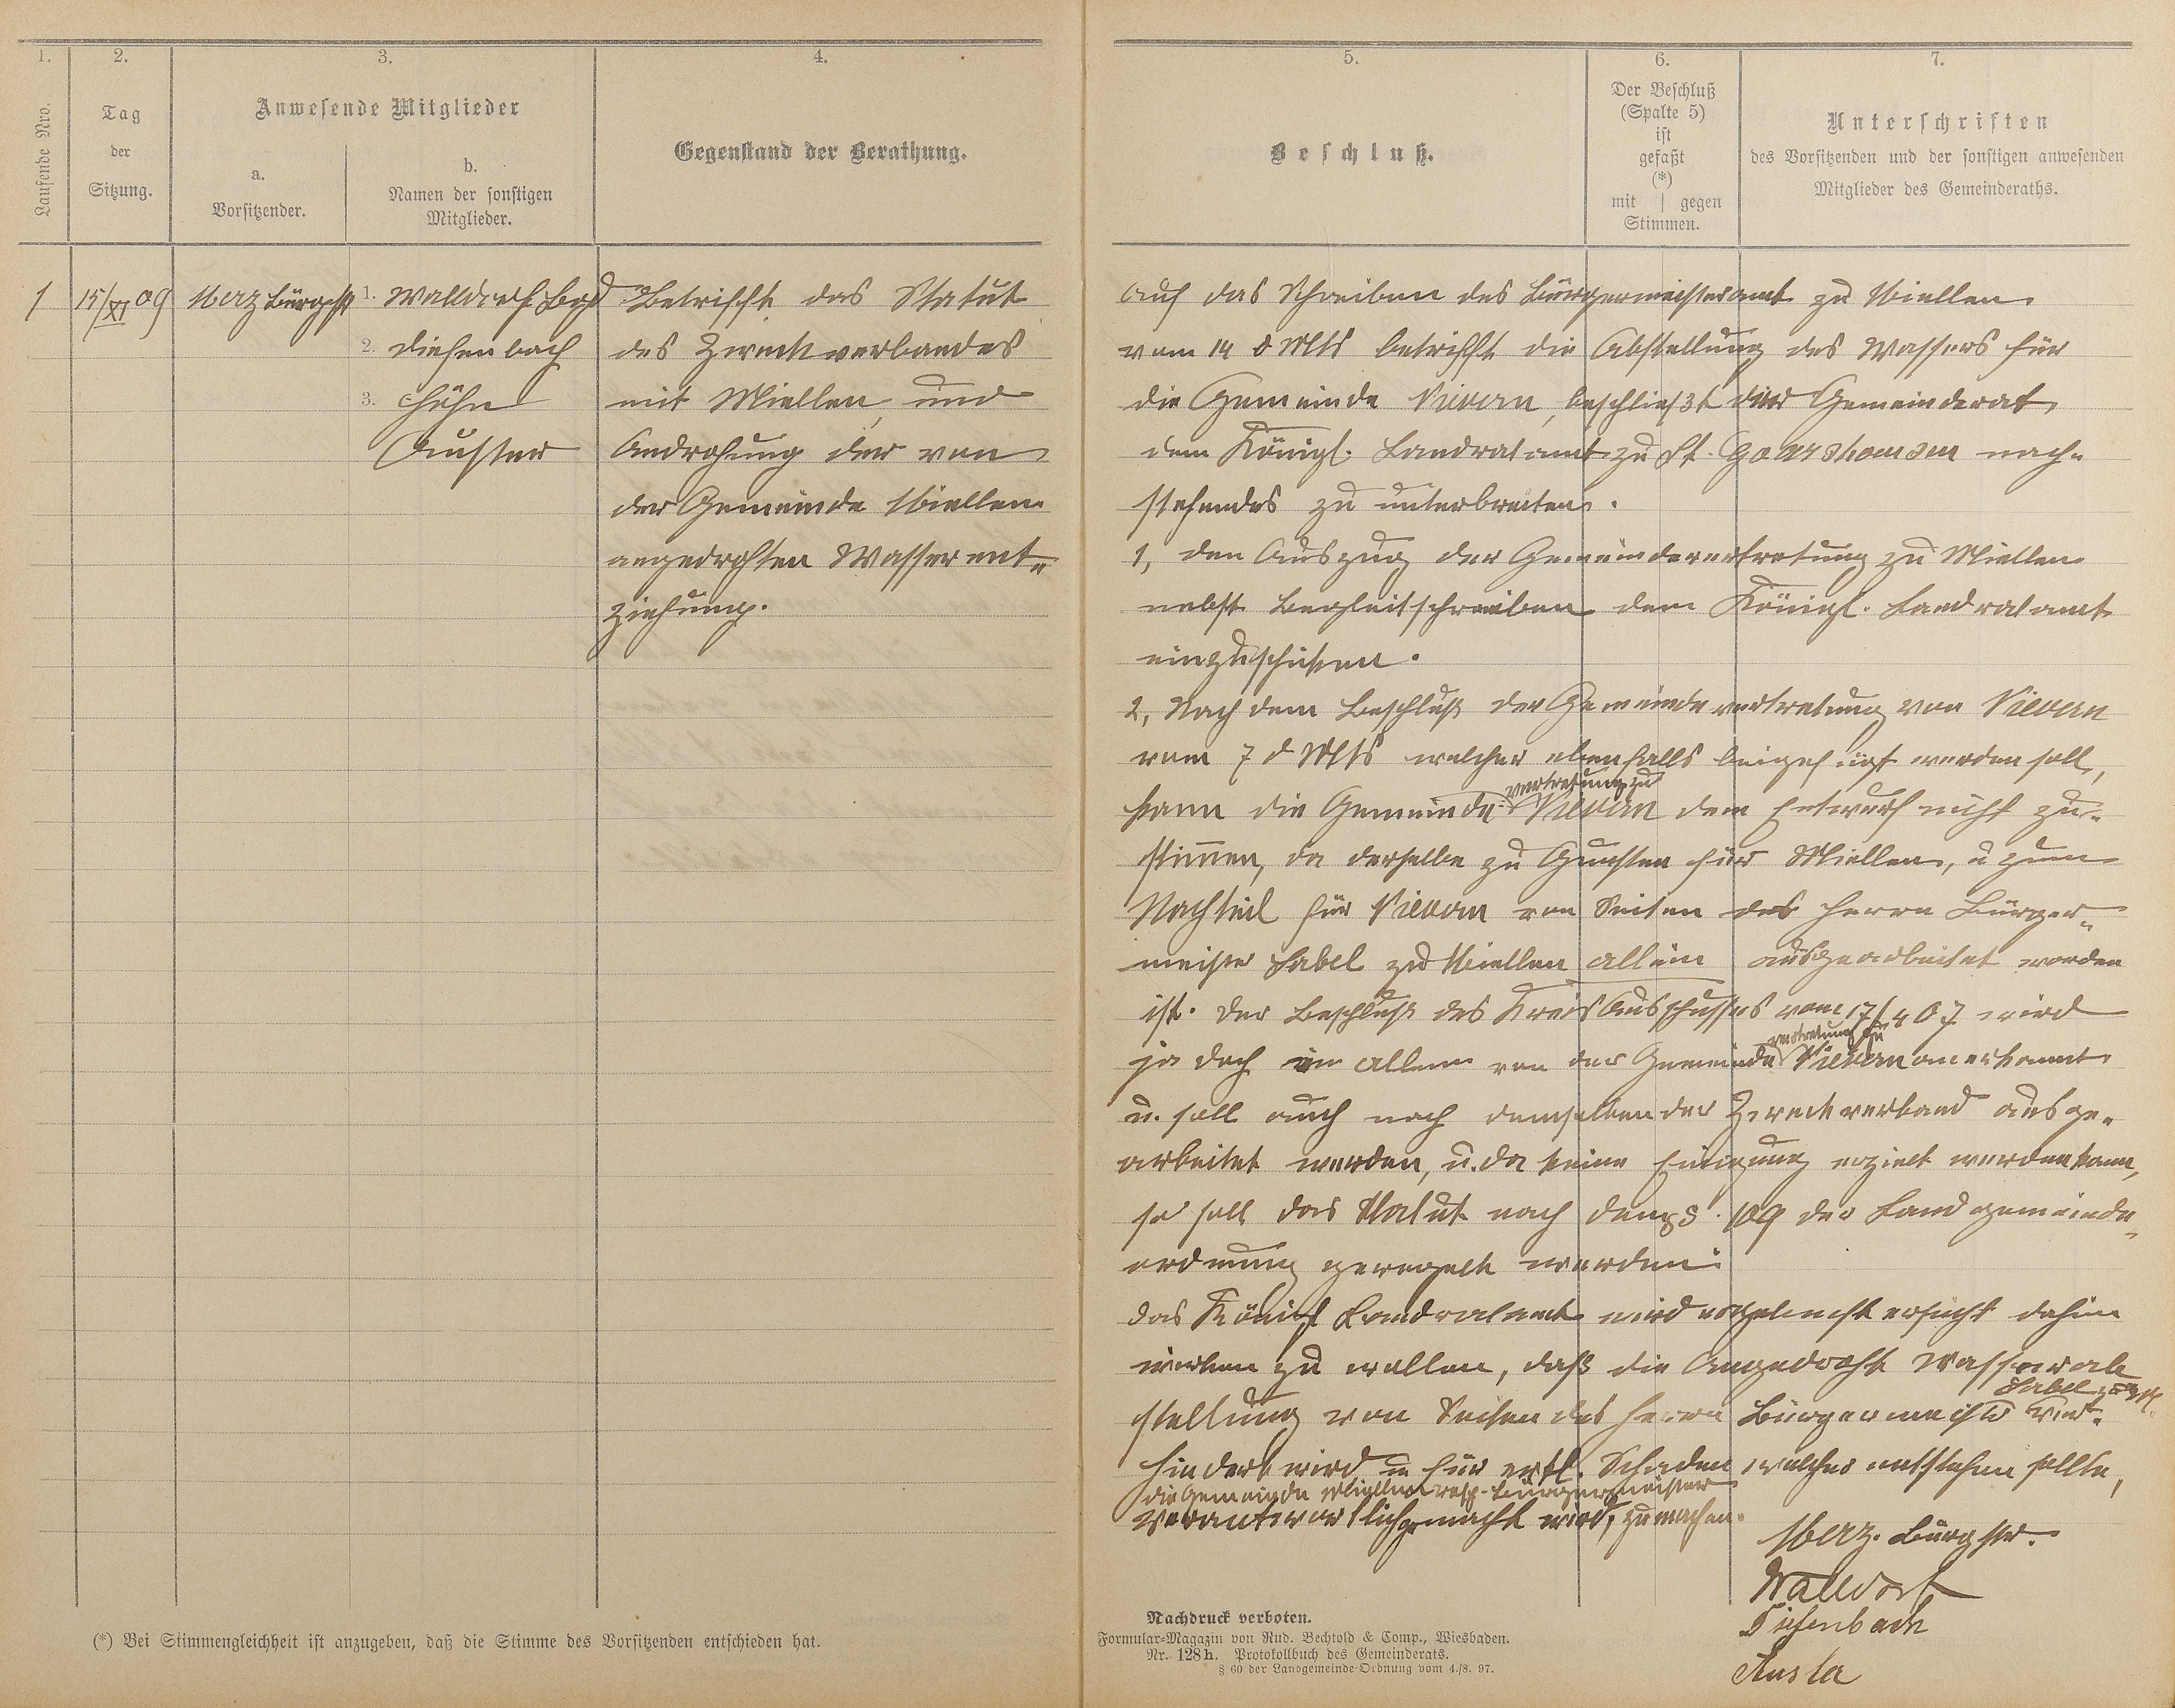 1.
2.
3.
4.
Laufende Nro.
Tag
der
Sitzung.
Anwesende Mitglieder
a.
Vorsitzender.
b.
Namen der sonstigen
Mitglieder.
Gegenstand der Berathung.
1
15/XI 09
Merz Bürgstr
1. Walldorf Bgd
2. Diefenbach
3. Höhn
Auster
Betrifft das Statut
des Zweckverbandes
mit Miellen und
Androhung der von
der Gemeinde Miellen
angedrohten Wasserent-
ziehung.
(*) Bei Stimmengleichheit ist anzugeben, daß die Stimme des Vorsitzenden entschieden hat.
5.
6.
7.
Beschluß.
Der Beschluß
(Spalte 5)
ist
gefaßt
(*)
mit | gegen
Stimmen.
Unterschriften
des Vorsitzenden und der sonstigen anwesenden
Mitglieder des Gemeinderaths.
Auf das Schreiben des Bürgermeisteramt zu Miellen
vom 14 d Mts betrifft die Abstellung des Wassers für
die Gemeinde Nievern, beschließt der Gemeinderat,
dem Königl. Landratamt zu St. Goarshausen nach-
stehendes zu unterbreiten.
1, den Auszug der Gemeindevertretung zu Miellen
nebst Begleitschreiben dem Königl. Landratamt
einzuschicken.
2, Nach dem Beschluß der Gemeindevertretung von Nievern
vom 7 d Mts welcher ebenfalls beigefügt werden soll,
vertretung zu
kann die Gemeinde Nievern dem Entwurf nicht zu-
stimmen, da derselbe zu Gunsten für Miellen, u zum
Nachteil für Nievern von Seiten des Herrn Bürger-
meister Sabel zu Miellen allein ausgearbeitet worden
ist. Der Beschluß des Kreisausschusses vom 17/4 07 wird
vertretung zu
ja doch in allem von der Gemeinde Nievern anerkannt
u. soll auch nach demselben der Zweckverband ausge-
arbeitet werden, u. da keine Einigung erzielt werden kann,
so soll das Statut nach dem § 109 der Landgemeinde-
ordnung geregelt werden.
Das Königl Landratamt wird ergebenst ersucht dahin
wirken zu wollen, daß die Angedrohte Wasserab
Sabel
stellung von Seiten des Herrn Bürgermeister ver-
hindert wird u für evtl. Schaden, welcher entstehen sollte,
die Gemeinde Miellen resp. Bürgermeister
verantwortlich gemacht wird, zu machen.
Merz. Bürgstr.
Walldorf
Diefenbach
Auster
Nachdruck verboten.
Formular-Magazin von Rud. Bechtold & Comp., Wiesbaden.
Nr. 128h. Protokollbuch des Gemeinderats.
§ 60 der Landgemeinde-Ordnung vom 4./8. 97.